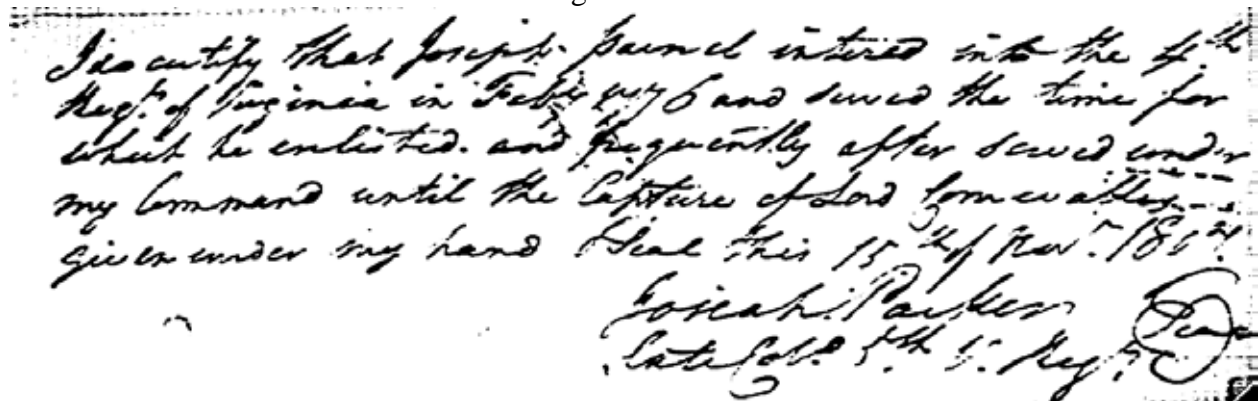 I do certify that Joseph intired into the 4th
Regt. of Virginia in Feby 1776 and served the time for
which he enlisted. and frequently after served under
my Command until the Capture of Lord Cornwallis
given under my hand & Seal this 15th of Novr.
Josiah Parker Seal
Late Colo. 5th V. Regt.